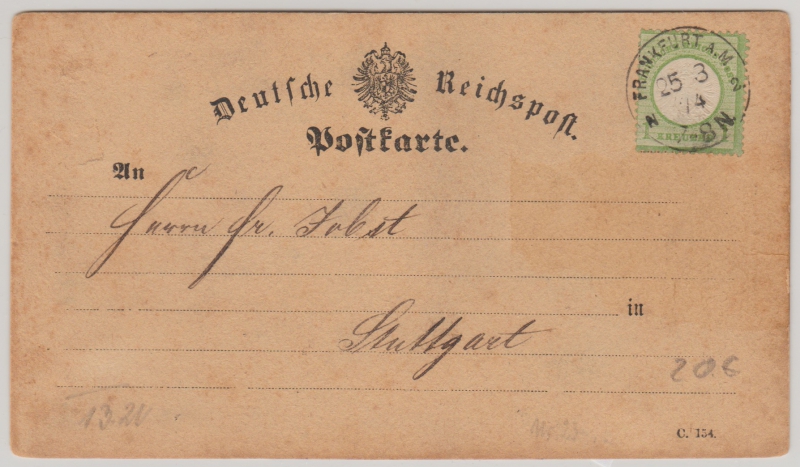 Deutsche Reichspost.
Postkarte.
FRANKFURT A.M. 2
25 3
74
N 8-N
1 KREUZER
An
Herrn Fr. Jobst
in
Stuttgart
20€
13.20
C. 154.